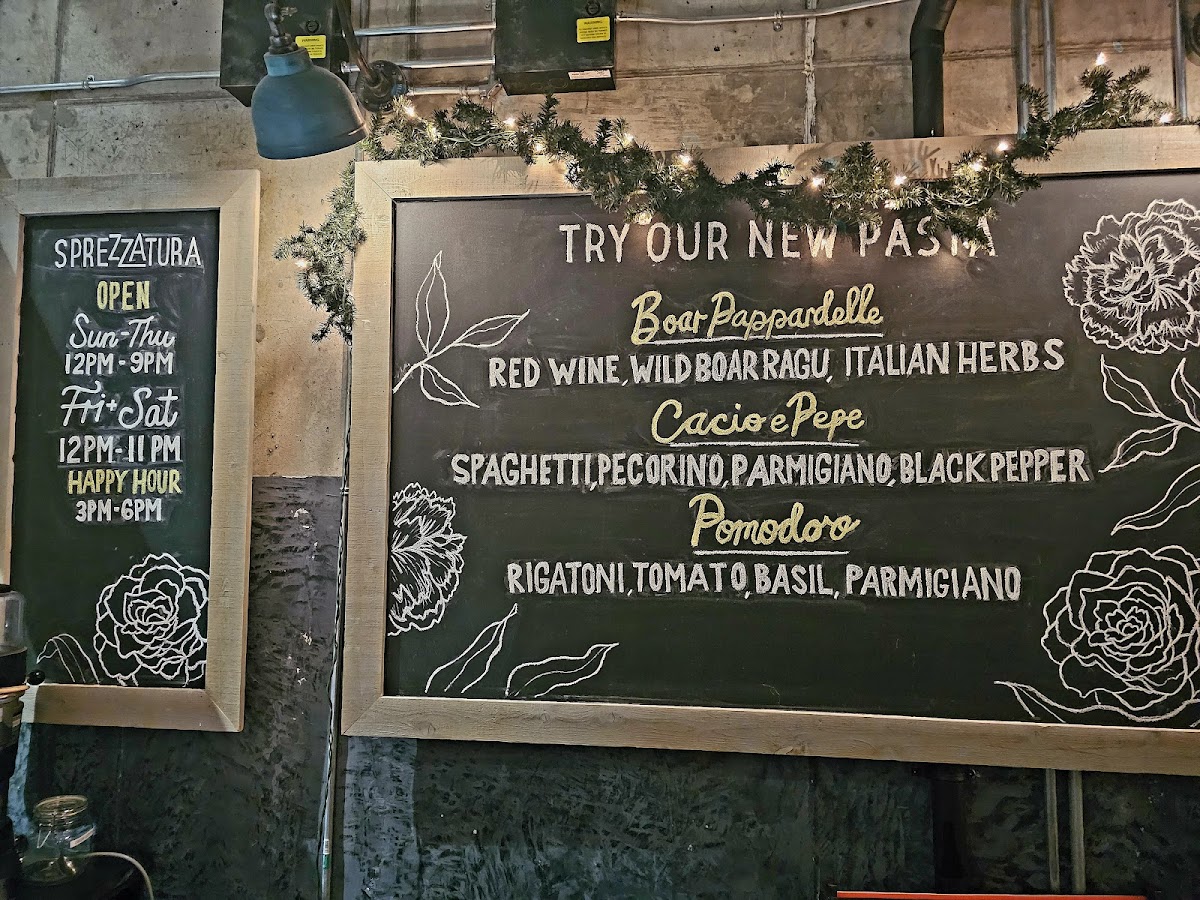 SPREZZATURA
OPEN
Sun-Thu
12PM-9PM
Fri+Sat
12PM-11PM
HAPPY HOUR
3PM-6PM
TRY OUR NEW PASTA
Boar Pappardelle
RED WINE, WILD BOAR RAGU, ITALIAN HERBS
Cacio e Pepe
SPAGHETTI, PECORINO, PARMIGIANO, BLACK PEPPER
Pomodoro
RIGATONI, TOMATO, BASIL, PARMIGIANO